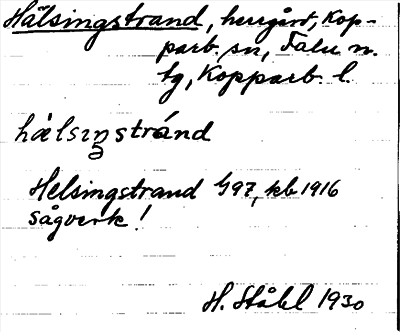 Hälsingstrand, herrgård, Kop-
parb. sn, Falu n.
tg, Kopparb. l.
hälsiŋstránd
Helsingstrand G97, kb 1916
sågverk!
H. Ståhl 1930